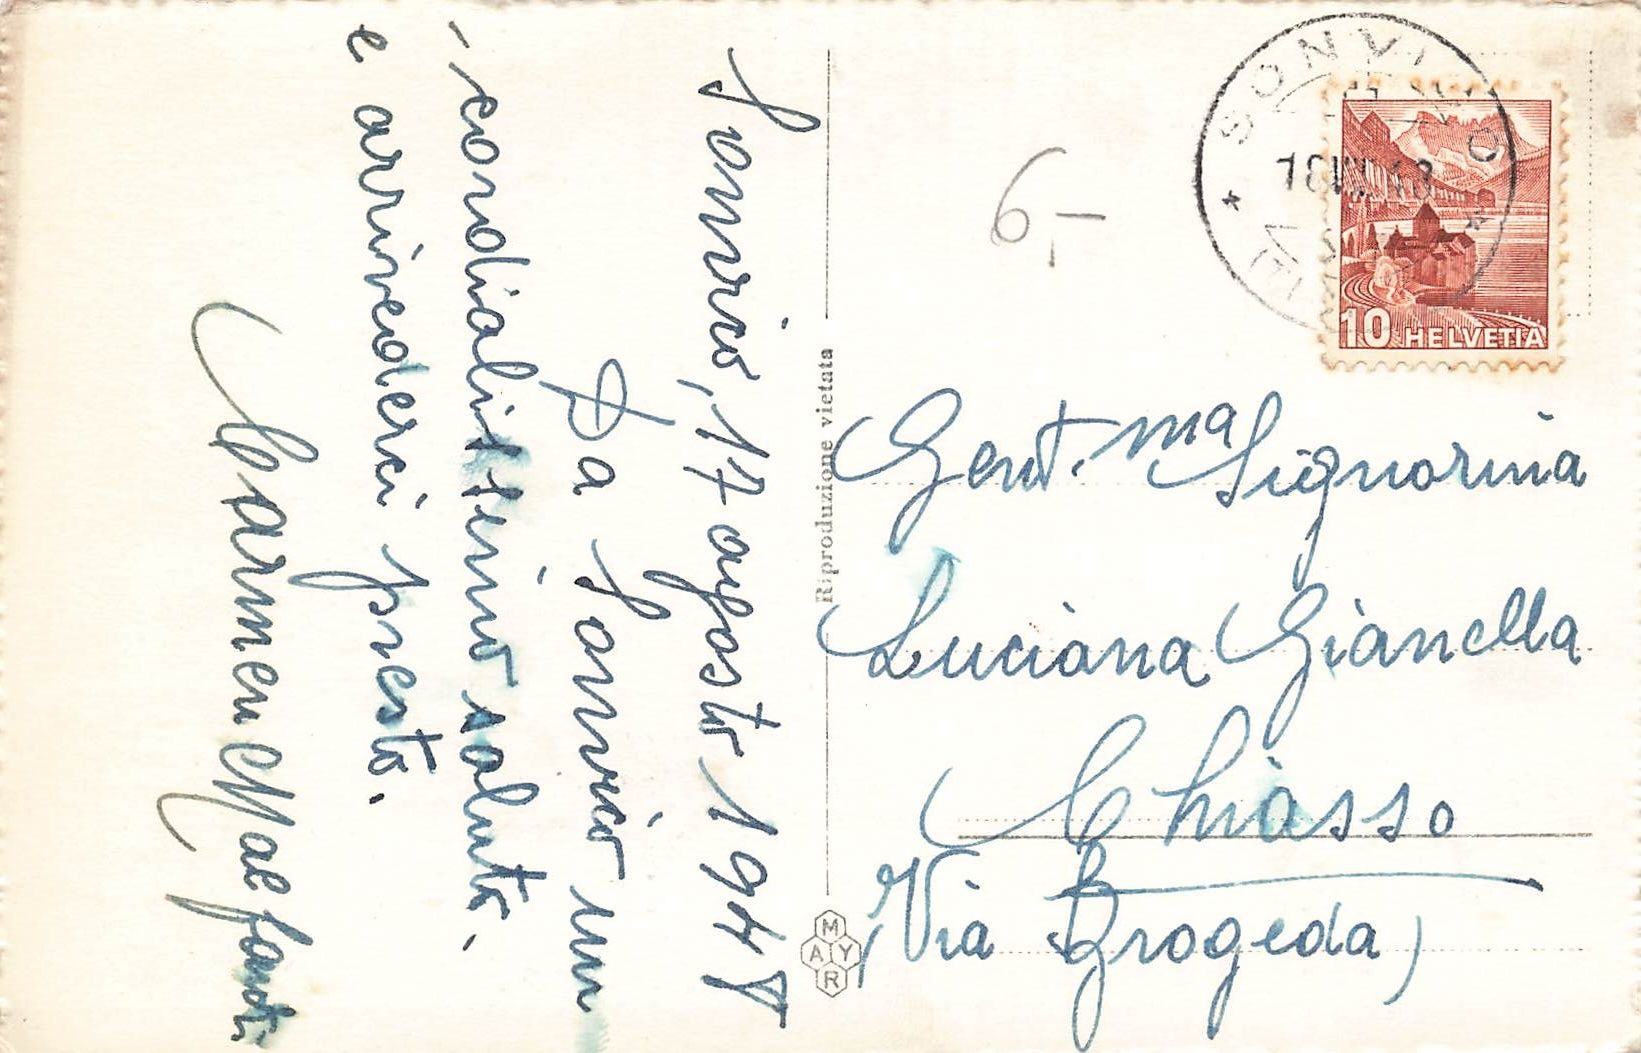 Sonvico, 17 agosto 1948
Da Sonvico un
cordialissimo saluto,
e arrivederci presto.
Carmen Malfanti
Riproduzione vietata
MAYR
6,–
SONVICO
HELVETIA
10
Gent.ma Signorina
Luciana Gianella
Chiasso
(Via Brogeda)